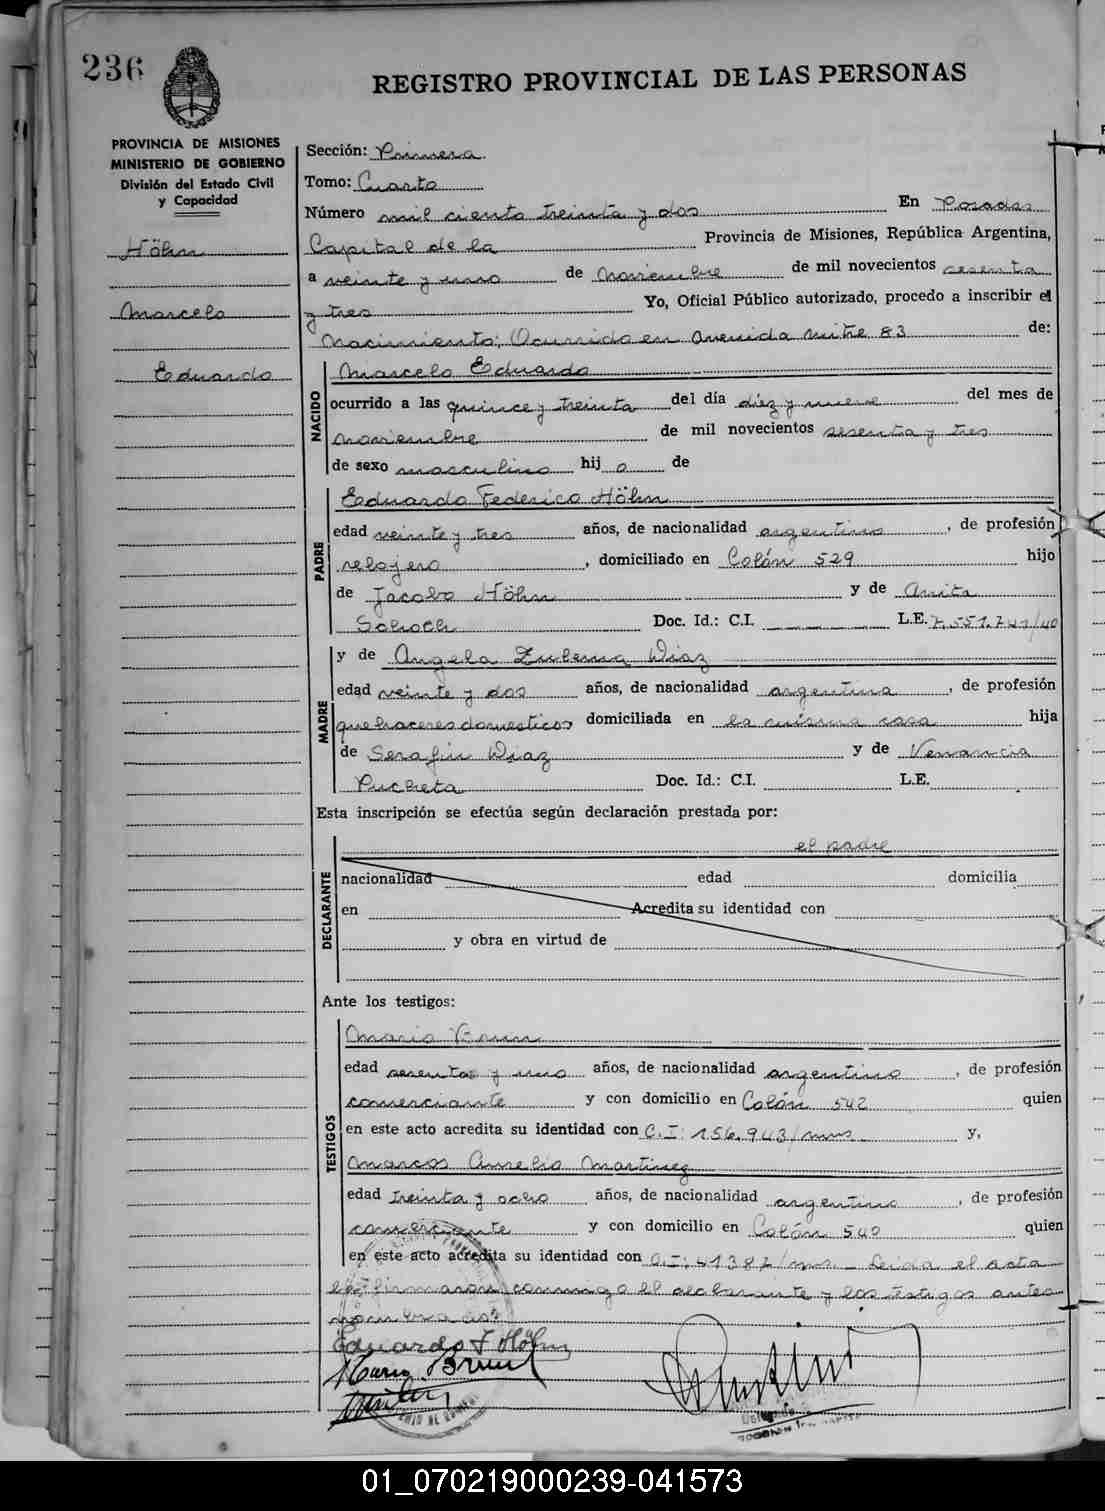 236
REGISTRO PROVINCIAL DE LAS PERSONAS
PROVINCIA DE MISIONES
MINISTERIO DE GOBIERNO
División del Estado Civil
y Capacidad
Höhn
Marcelo
Eduardo
Sección: Primera
Tomo: Cuarto
Número mil ciento treinta y dos En Posadas
Capital de la Provincia de Misiones, República Argentina,
a veinte y uno de noviembre de mil novecientos sesenta
y tres Yo, Oficial Público autorizado, procedo a inscribir el
nacimiento; Ocurrido en Avenida Mitre 83 de:
NACIDO
Marcelo Eduardo
ocurrido a las quince y treinta del día diez y nueve del mes de
noviembre de mil novecientos sesenta y tres
de sexo masculino hij o de
PADRE
Eduardo Federico Höhn
edad veinte y tres años, de nacionalidad argentino, de profesión
relojero, domiciliado en Colón 529 hijo
de Jacobo Höhn y de Anita
Schoch Doc. Id.: C.I. L.E. 7.551.741/40
MADRE
y de Angela Zulema Diaz
edad veinte y dos años, de nacionalidad argentina, de profesión
quehaceres domesticos domiciliada en la misma casa hija
de Serafin Diaz y de Venancia
Pucheta Doc. Id.: C.I. L.E.
Esta inscripción se efectúa según declaración prestada por:
DECLARANTE
el padre
nacionalidad edad domicilia
en Acredita su identidad con
y obra en virtud de
Ante los testigos:
TESTIGOS
Mario Brum
edad sesenta y uno años, de nacionalidad argentino, de profesión
comerciante y con domicilio en Colón 542 quien
en este acto acredita su identidad con C.I: 156.943/mns y,
Marcos Aurelio Martinez
edad treinta y ocho años, de nacionalidad argentino, de profesión
comerciante y con domicilio en Colón 540 quien
en este acto acredita su identidad con C.I: 41387/mns. - Leida el acta
la firmaron conmigo el declarante y los testigos antes
nombrados
Eduardo F Höhn
Mario Brum
01_070219000239-041573